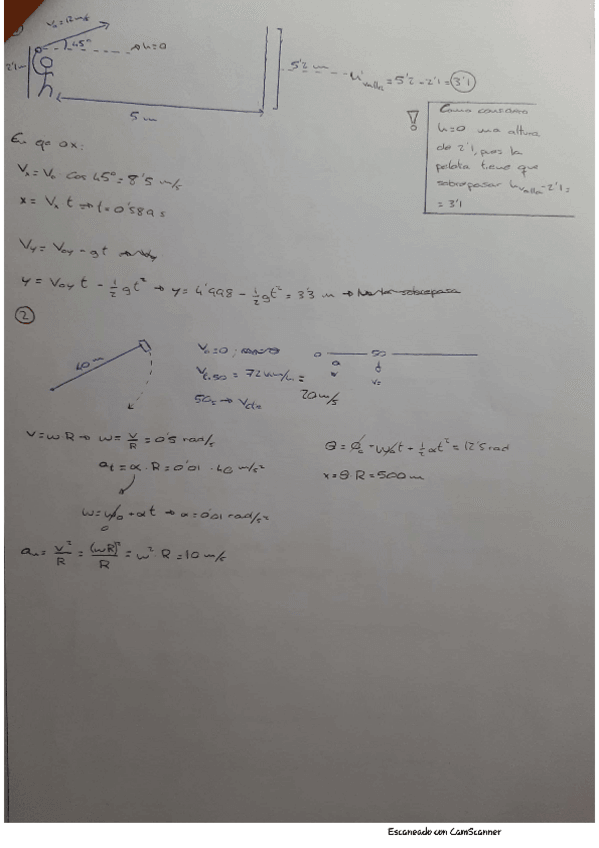 V₀=12 m/s
45°
h=0
2'1 m
5 m
5'2 m
h'valla = 5'2 - 2'1 = 3'1
!
Como considero
h=0 una altura
de 2'1, pues la
pelota tiene que
sobrepasar hvalla-2'1=
= 3'1
En eje ox:
Vx = V₀ cos 45° = 8'5 m/s
x = Vx t → t = 0'589 s
Vy = Voy - gt
y = Voy t - 1/2 gt² → y = 4'998 - 1/2 gt² = 3'3 m → No la sobrepasa
2
40 m
V₀=0 ;
Vt=50 = 72 km/h =
20 m/s
50s → Vcte
0
50
V = ω R → ω = V/R = 0'5 rad/s
at = α · R = 0'01 · 40 m/s²
ω = ω₀ + αt → α = 0'01 rad/s²
0
an = V²/R = (ωR)²/R = ω² · R = 10 m/s
θ = θ₀ + ω₀t + 1/2 αt² = 12'5 rad
x = θ · R = 500 m
Escaneado con CamScanner